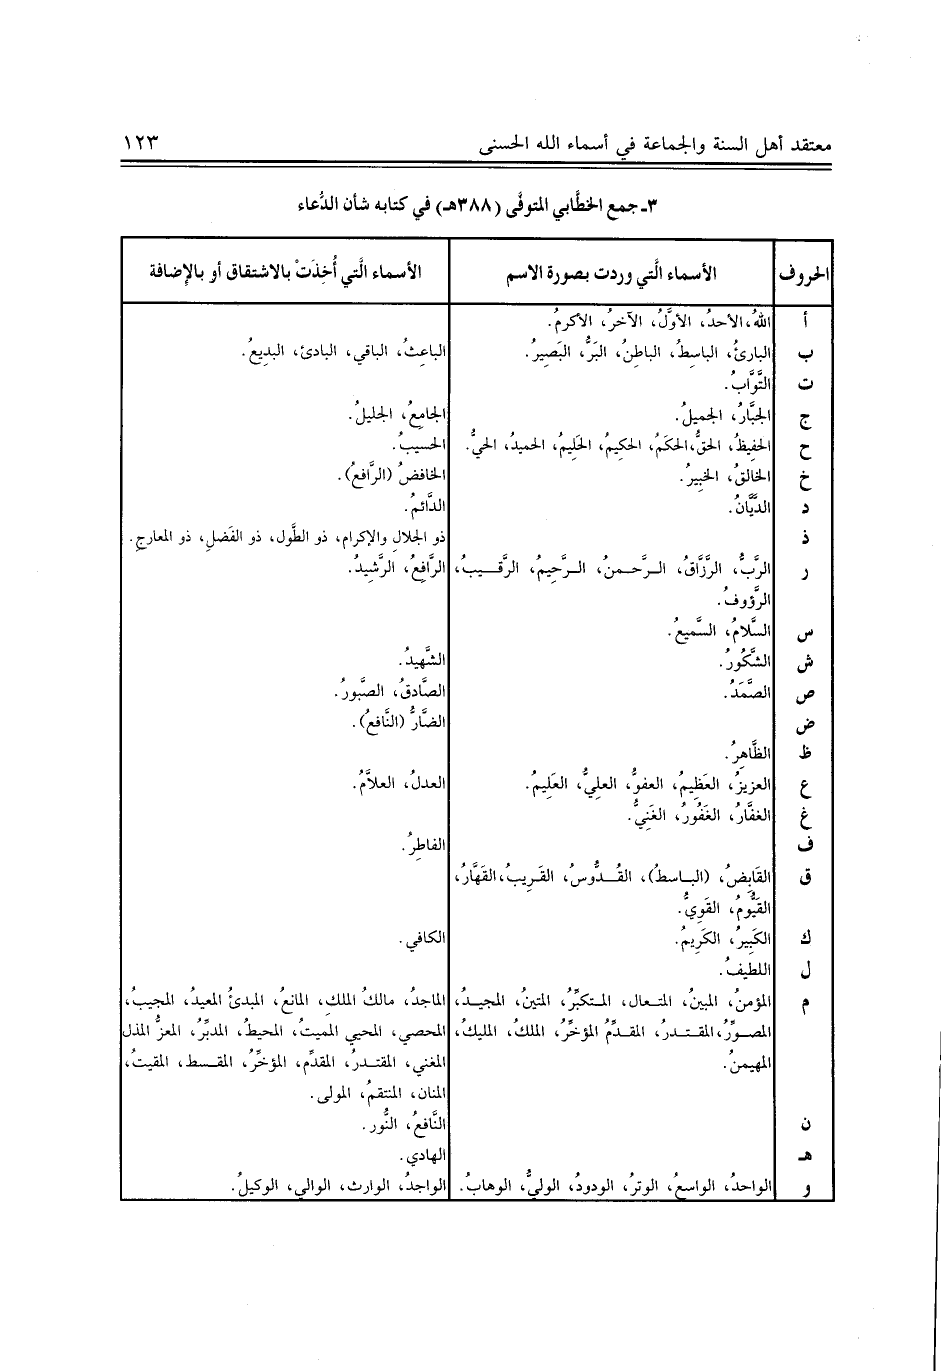 معتقد أهل السنة والجماعة في أسماء الله الحسنى ١٢٣
٣ـ جمع الخطَّابي المتوفَّى (٣٨٨هـ) في كتابه شأن الدُّعاء
الحروف الأسماء الَّتي وردت بصورة الاسم الأسماء الَّتي أُخِذَتْ بالاشتقاق أو بالإضافة
أ اللهُ، الأحدُ، الأوَّلُ، الآخرُ، الأكرمُ.
ب البارئُ، الباسطُ، الباطنُ، البَرُّ، البَصِيرُ. الباعثُ، الباقي، البادئ، البديعُ.
ت التَّوَّابُ.
ج الجبَّارُ، الجميلُ. الجامعُ، الجليلُ.
ح الحفيظُ، الحقُّ، الحكَمُ، الحكيمُ، الحَلِيمُ، الحميدُ، الحيُّ. الحسيبُ.
خ الخالقُ، الخبيرُ. الخافضُ (الرَّافعُ).
د الدَّيَّانُ. الدَّائمُ.
ذ ذو الجلال والإكرام، ذو الطَّول، ذو الفَضلِ، ذو المعارج.
ر الرَّبُّ، الرَّزَّاقُ، الـرَّحـمنُ، الـرَّحيمُ، الرَّقـيبُ، الرَّافعُ، الرَّشيدُ.
الرَّؤوفُ.
س السَّلامُ، السَّميعُ.
ش الشَّكُورُ. الشَّهيدُ.
ص الصَّمَدُ. الصَّادقُ، الصَّبورُ.
ض الضَّارُّ (النَّافعُ).
ظ الظَّاهِرُ.
ع العزيزُ، العَظِيمُ، العفوُّ، العليُّ، العَلِيمُ. العدلُ، العلاَّمُ.
غ الغفَّارُ، الغَفُورُ، الغَنِيُّ.
ف الفاطرُ.
ق القَابِضُ، (البـاسطُ)، القُـدُّوسُ، القَـرِيبُ، القهَّارُ،
القَيُّومُ، القَوِيُّ.
ك الكَبِيرُ، الكَرِيمُ. الكافي.
ل اللطيفُ.
م المؤمنُ، المبينُ، المتـعال، المـتكبِّرُ، المتينُ، المجيـدُ، الماجدُ، مالكُ الملكِ، المانعُ، المبدئُ المعيدُ، المجيبُ،
المصـوِّرُ، المقـتـدرُ، المقـدِّمُ المؤخِّرُ، الملكُ، المليكُ، المحصي، المحيي المميتُ، المحيطُ، المدبِّرُ، المعزُّ المذل
المهيمنُ. المغني، المقتـدرُ، المقدِّم، المؤخِّرُ، المقـسط، المقيتُ،
المنان، المنتقمُ، المولى.
ن النَّافعُ، النُّور.
هـ الهادي.
و الواحدُ، الواسعُ، الوترُ، الودودُ، الوليُّ، الوهابُ. الواجدُ، الوارث، الوالي، الوكيلُ.